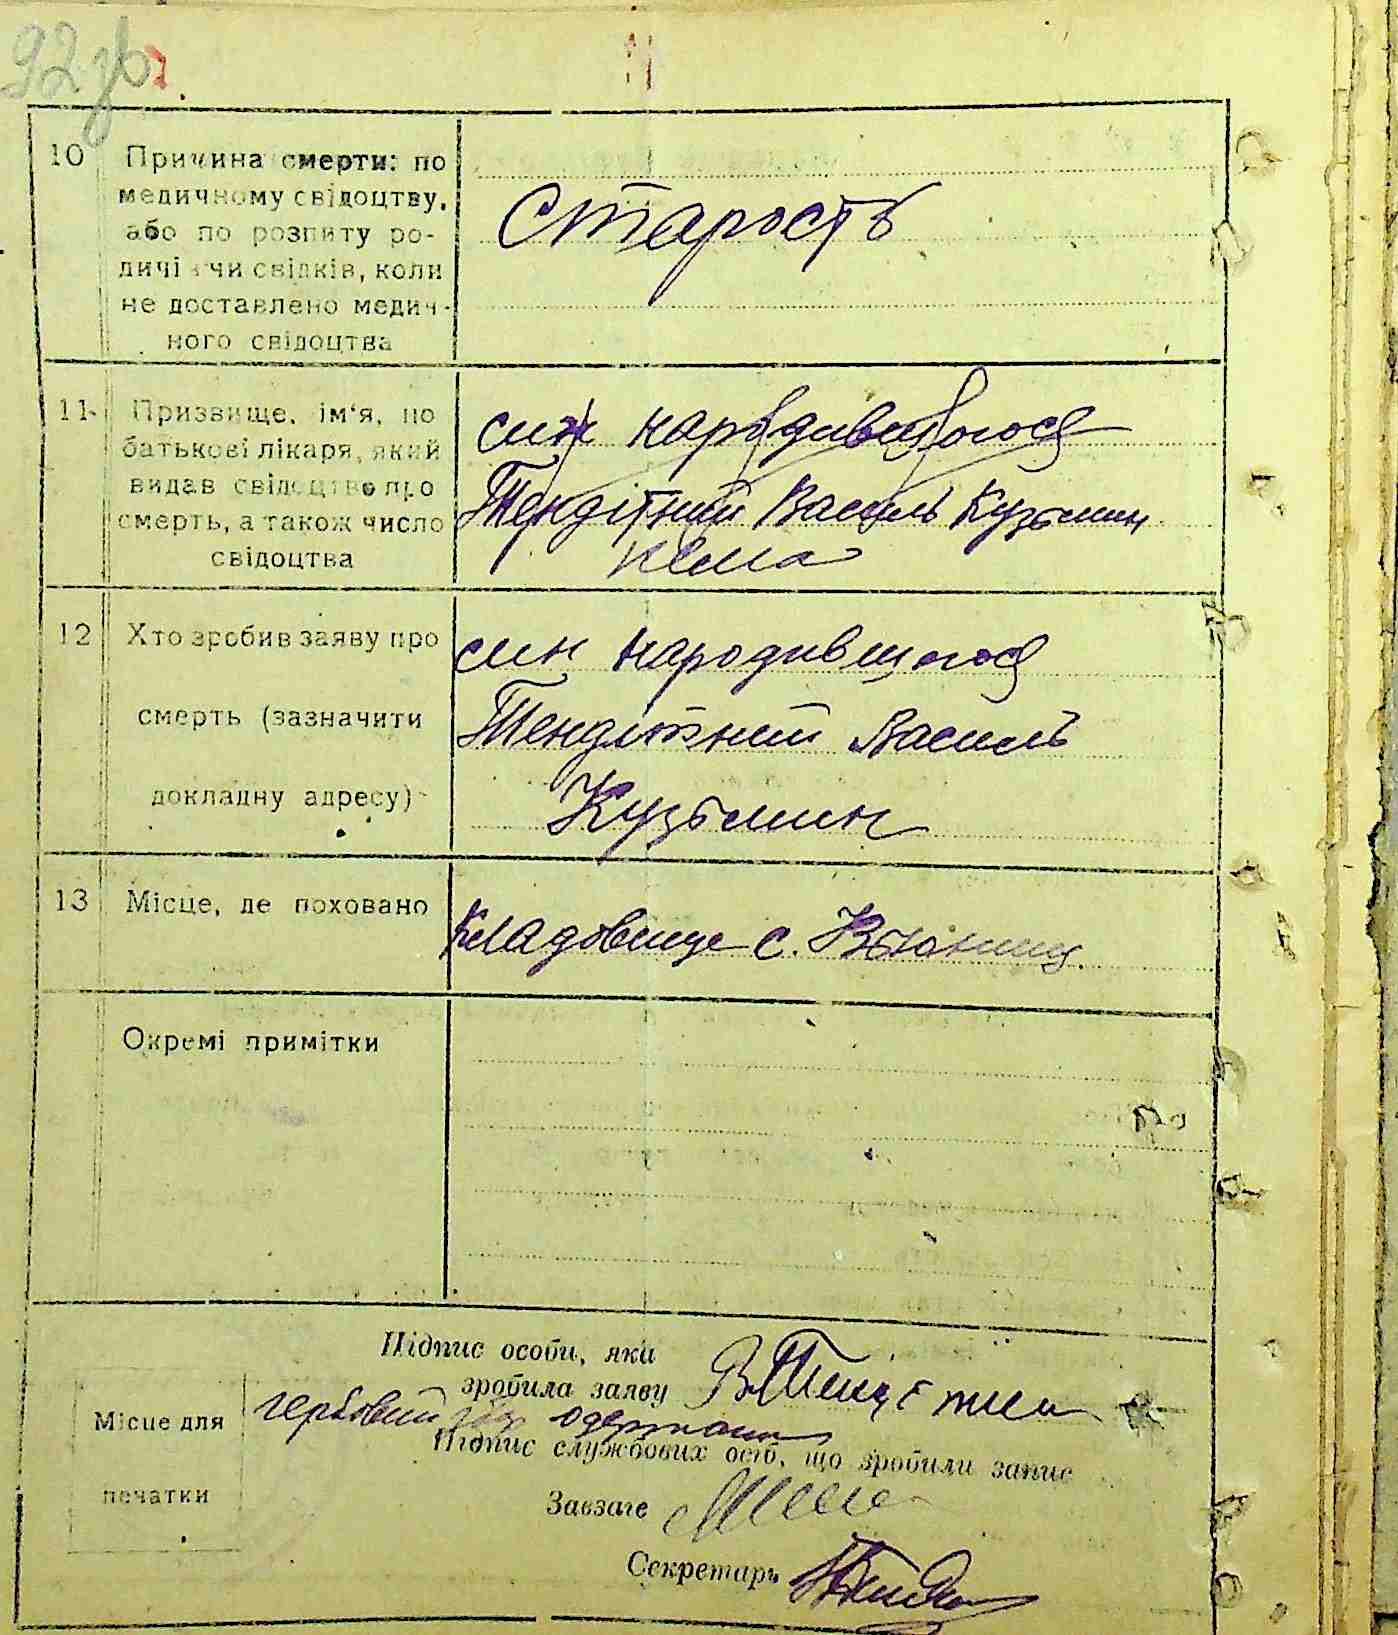 92 зв
10 Причина смерти: по
медичному свідоцтву,
або по розпиту ро-
дичів чи свідків, коли
не доставлено медич-
ного свідоцтва
Старость
11 Призвище, ім'я, по
батькові лікаря, який
видав свідоцтво про
смерть, а також число
свідоцтва
син народившогося
Тендітний Василь Кузьмин
нема
12 Хто зробив заяву про
смерть (зазначити
докладну адресу)
син народившогося
Тендітний Василь
Кузьмин
13 Місце, де поховано
Кладовище с.
Окремі примітки
Підпис особи, яка
зробила заяву
Місце для
печатки
гербовий одержано
Підпис службових осіб, що зробили запис
Завзаге
Секретарь